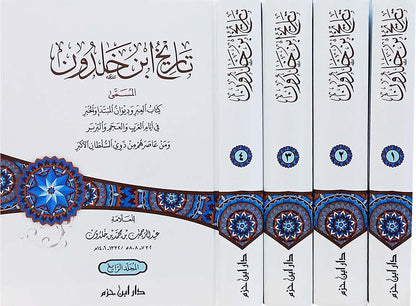 تاريخ ابن خلدون
المسمى
كتاب العبر وديوان المبتدا والخبر
في أيام العرب والعجم والبربر
ومن عاصرهم من ذوي السلطان الأكبر
للعلامة
عبد الرحمن بن محمد بن خلدون
٧٣٢-٨٠٨هـ/١٣٣٢-١٤٠٦م
المجلد الرابع
دار ابن حزم
تاريخ ابن خلدون
٤
دار ابن حزم
تاريخ ابن خلدون
٣
دار ابن حزم
تاريخ ابن خلدون
٢
دار ابن حزم
تاريخ ابن خلدون
١
دار ابن حزم